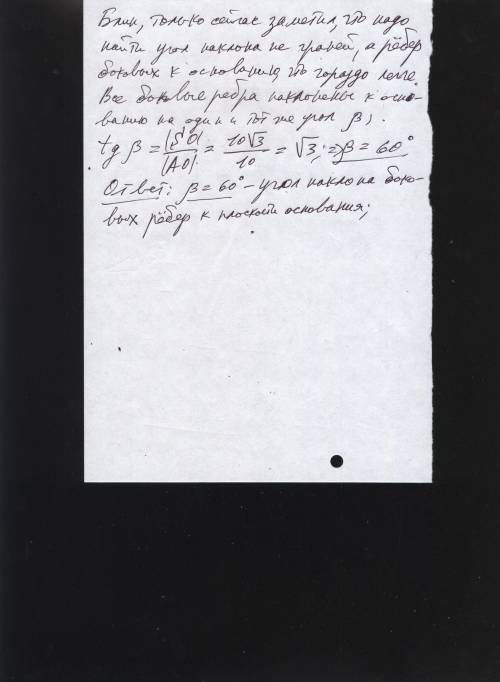 Блин, только сейчас заметил, что надо
найти угол наклона не граней, а рёбер
боковых к основанию, что гораздо легче.
Все боковые ребра наклонены к осно-
ванию на один и тот же угол β;
tg β = |SO| / |AO| = 10√3 / 10 = √3; ⇒ β = 60°
Ответ: β = 60° - угол наклона боко-
вых рёбер к плоскости основания;